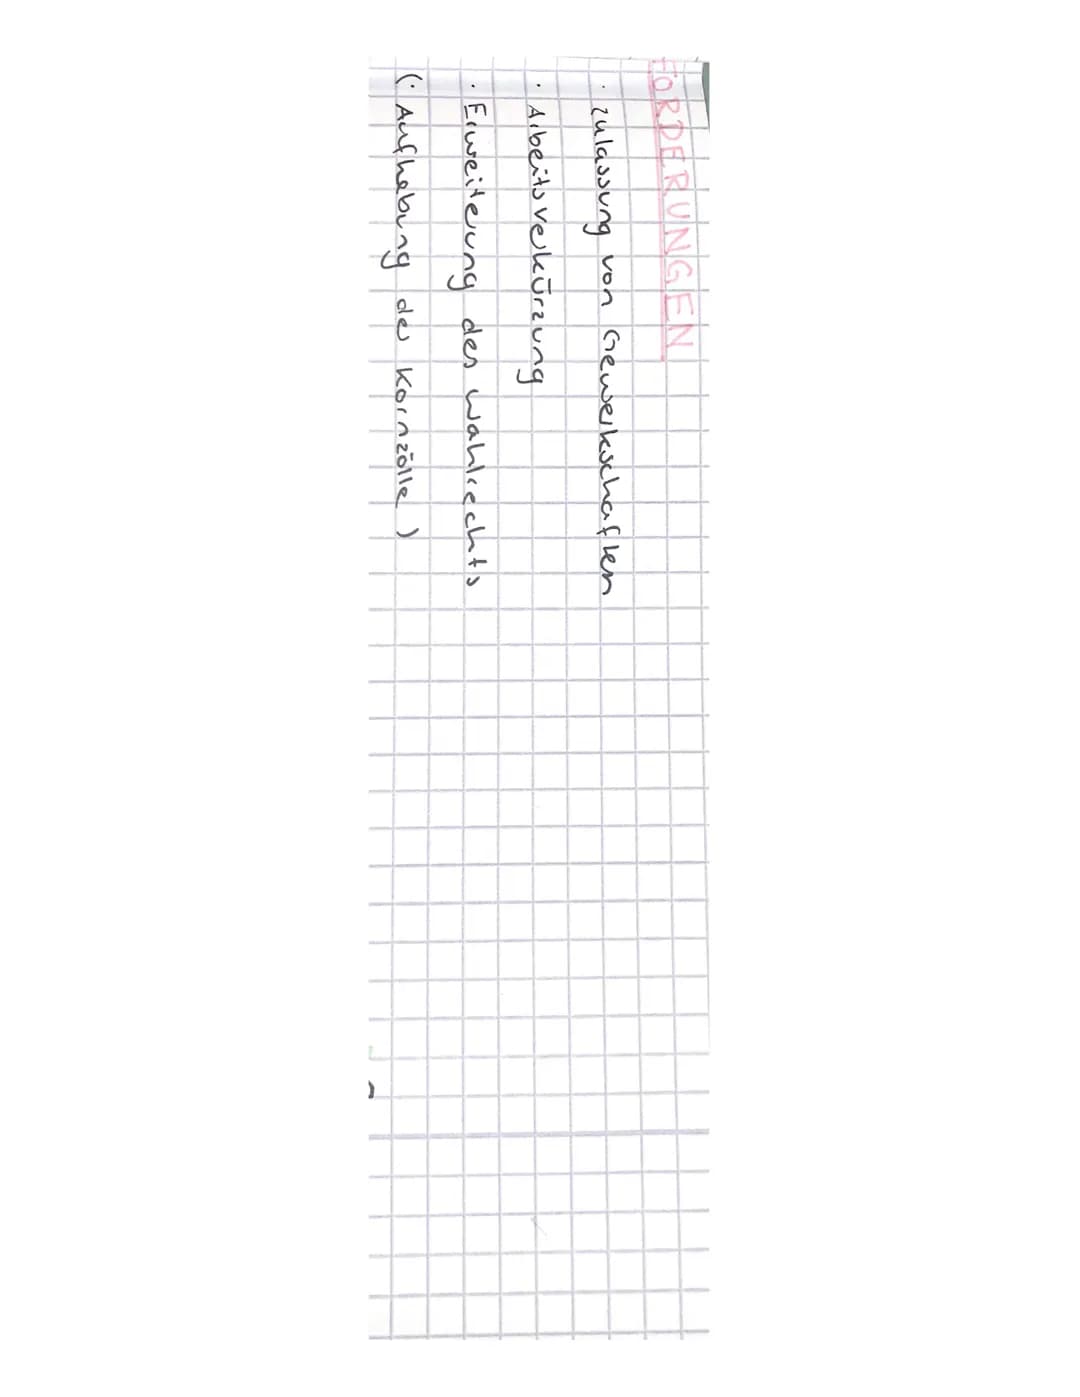 FORDERUNGEN
· Zulassung von Gewerkschaften
· Arbeitsverkürzung
· Erweiterung des Wahlrechts
(· Aufhebung der Kornzölle)